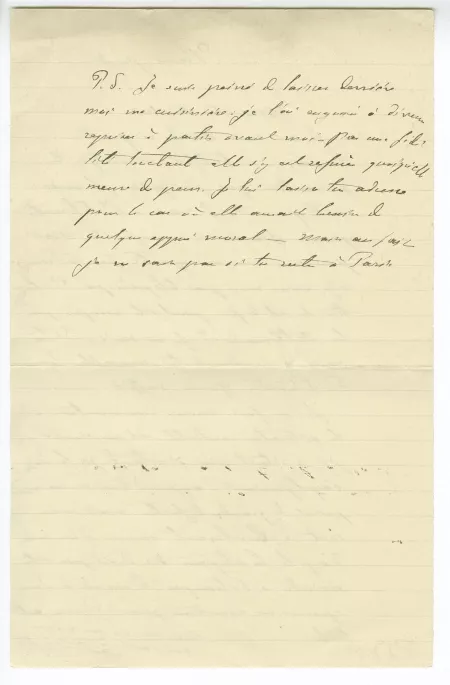 P.S. Je suis peiné de laisser derrière
moi ma cuisinière. je l'ai engagé à diverses
reprises à partir avant moi — Par une fidé-
lité touchante elle s'y est refusée quoiqu'elle
meure de peur. Je lui laisse ton adresse
pour le cas où elle aurait besoin de
quelque appui moral — Mais au fait
je ne sais pas si tu restes à Paris